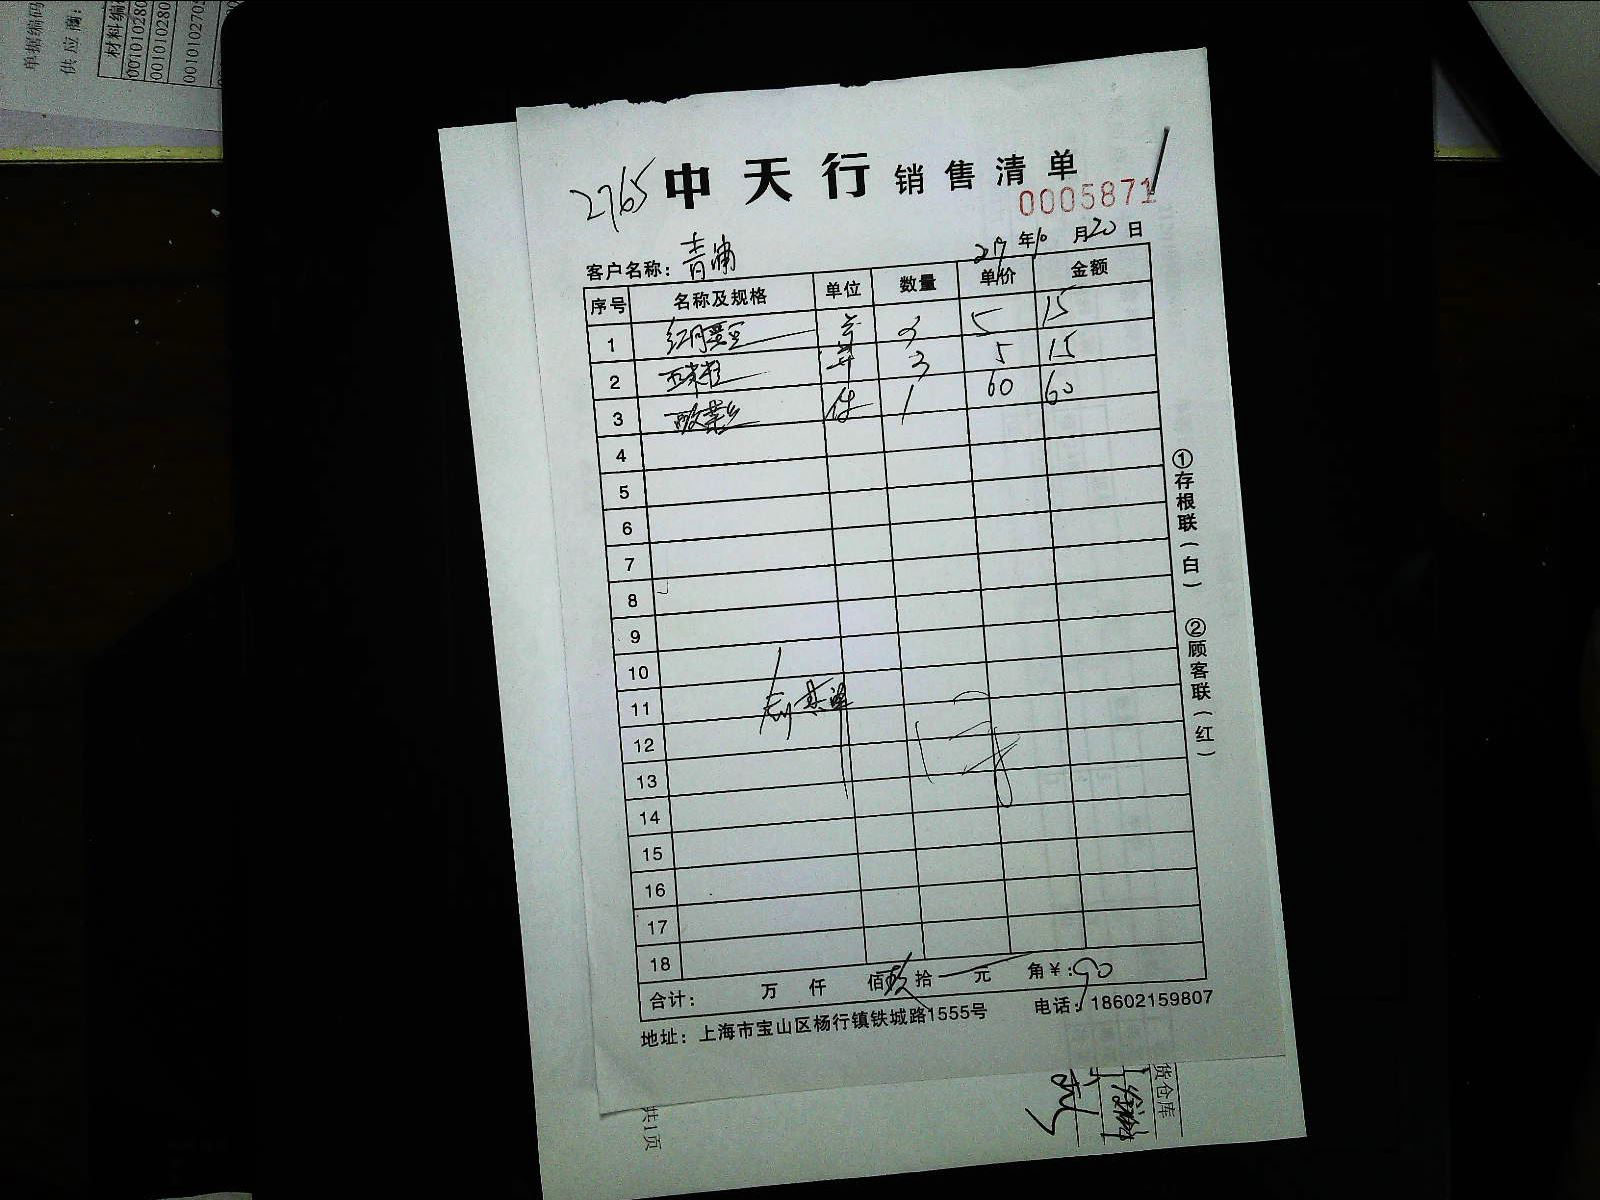 单据编码
供应商:
材料编
00101028
00101028
001010270
2765 中天行 销售清单
0005871
客户名称: 青浦 年10月20日
序号 名称及规格 单位 数量 单价 金额
1 红腰豆 3 5 15
2 玉米粒 3 5 15
3 酸菜 件 1 60 60
4
5
6
7
8
9
10
11
12
13
14
15
16
17
18
合计: 万 仟 佰 玖 拾 元 角 ¥: 90
地址: 上海市宝山区杨行镇铁城路1555号 电话: 18602159807
①存根联(白) ②顾客联(红)
货仓库
共1页